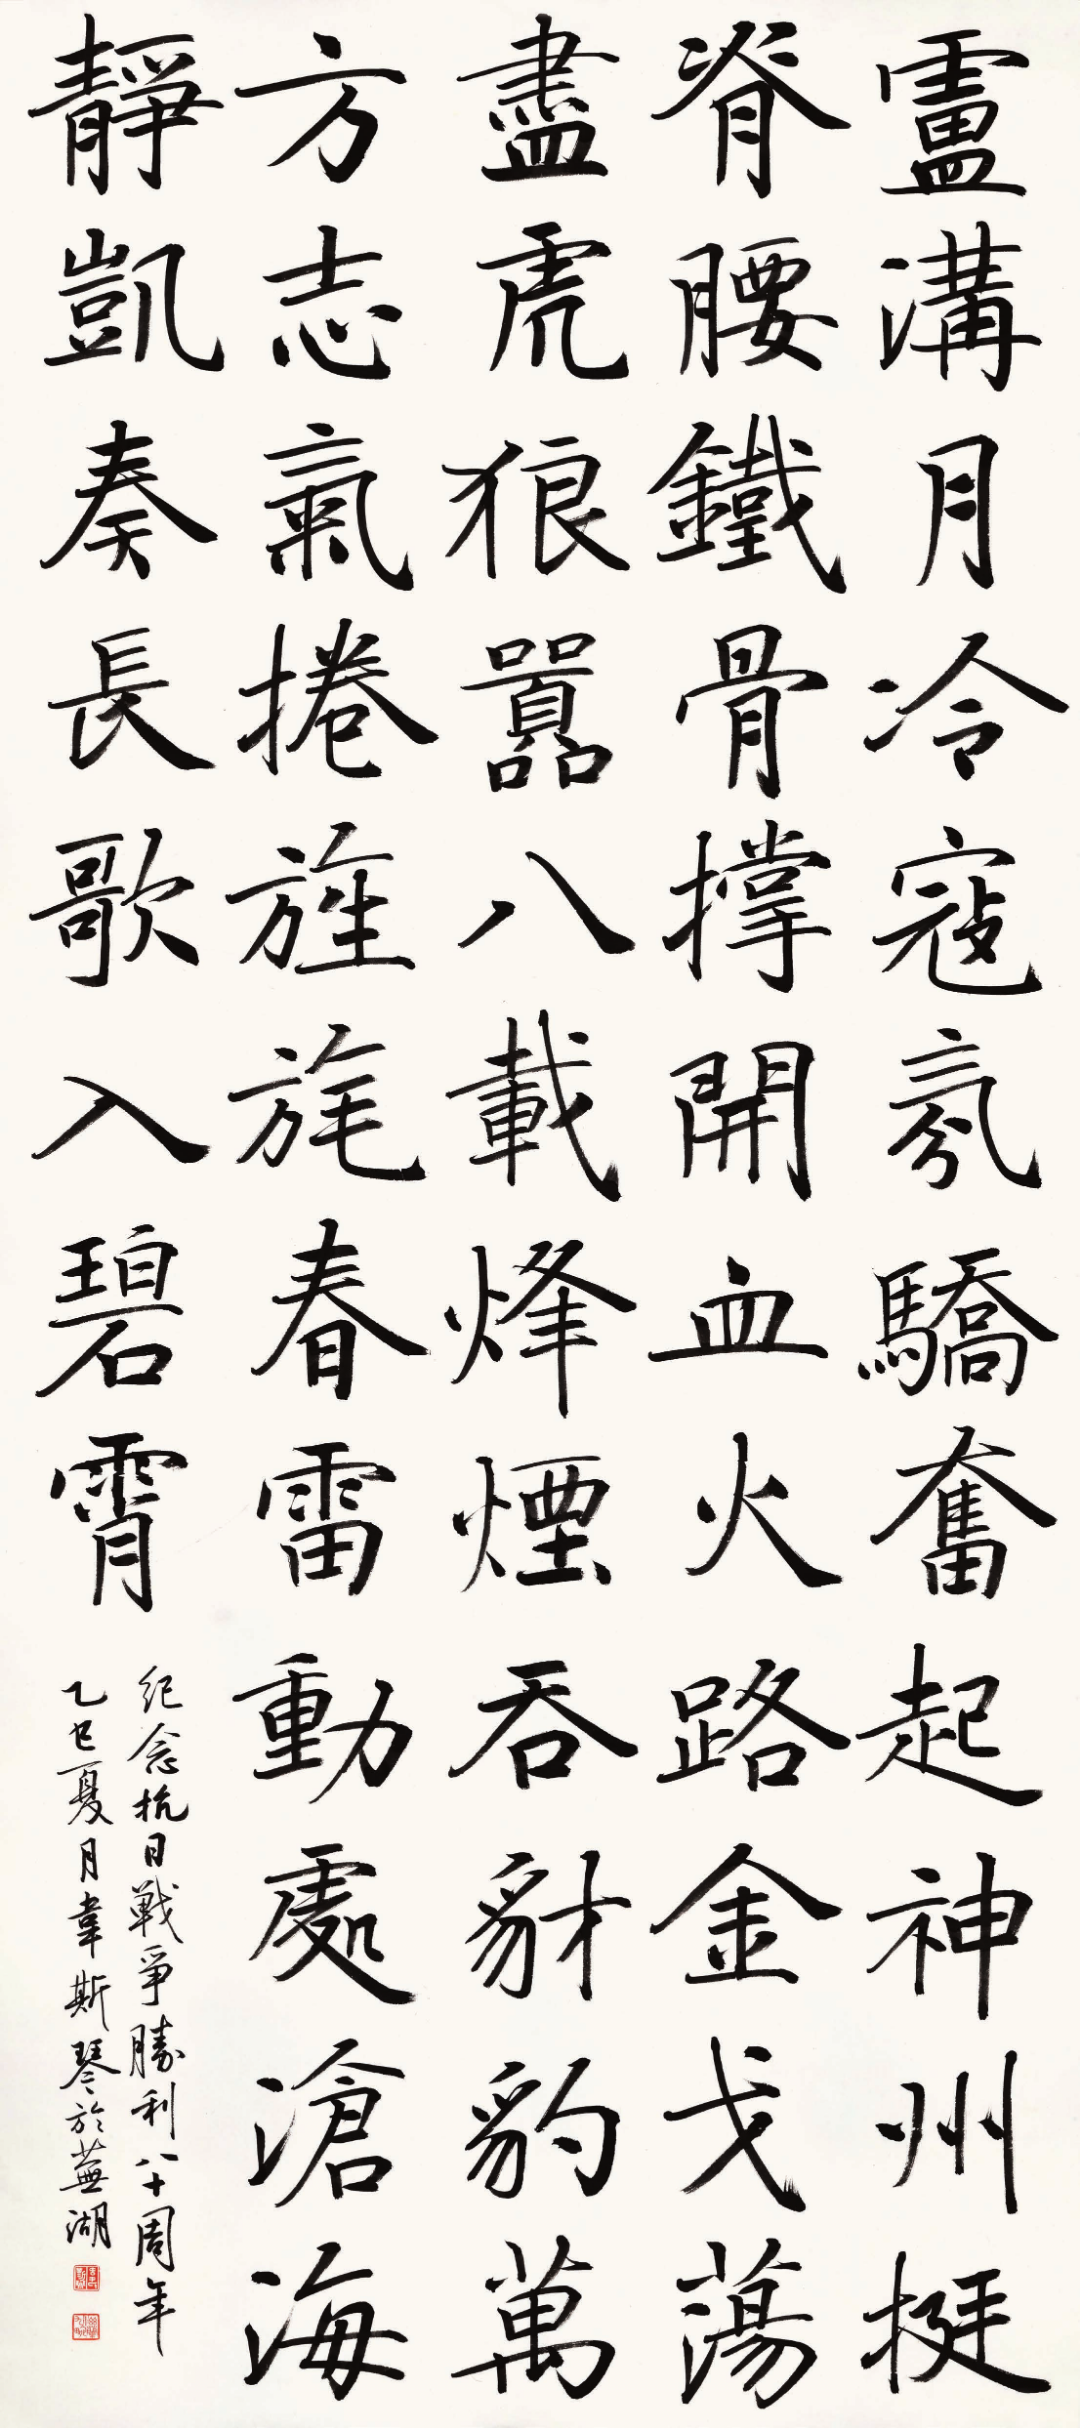 盧溝月冷寇氛驕奮起神州挺
脊腰鐵骨撐開血火路金戈蕩
盡虎狼囂八載烽煙吞豺豹萬
方志氣捲旌旄春雷動處滄海
靜凱奏長歌入碧霄
纪念抗日戰爭勝利八十周年
乙巳夏月韋斯琴於蕪湖